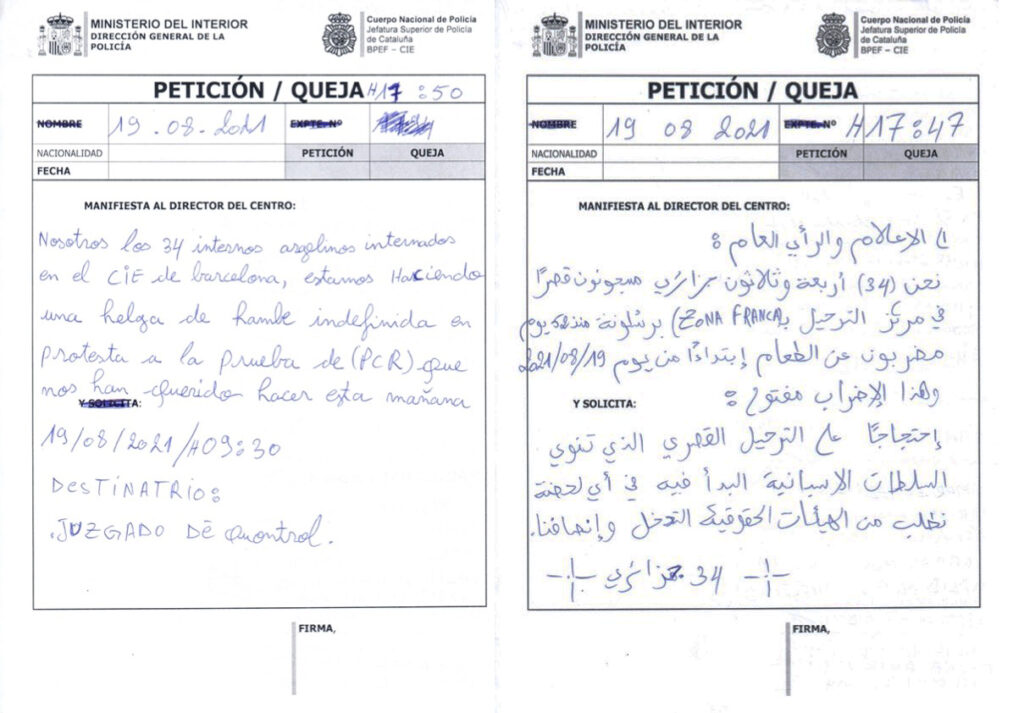 MINISTERIO DEL INTERIOR
DIRECCIÓN GENERAL DE LA
POLICÍA
Cuerpo Nacional de Policía
Jefatura Superior de Policía
de Cataluña
BPEF – CIE
PETICIÓN / QUEJA H17:50
NOMBRE 19.08.2021 EXPTE. Nº
NACIONALIDAD PETICIÓN QUEJA
FECHA
MANIFIESTA AL DIRECTOR DEL CENTRO:
Nosotros los 34 internos argelinos internados
en el CiE de barcelona, estamos Haciendo
una helga de hambe indefinida en
protesta a la prueba de (PCR) que
nos han querido hacer esta mañana
Y SOLICITA:
19/08/2021/H09:30
DESTINATRIO:
.JUZGADO DE Quontrol.
FIRMA,
MINISTERIO DEL INTERIOR
DIRECCIÓN GENERAL DE LA
POLICÍA
Cuerpo Nacional de Policía
Jefatura Superior de Policía
de Cataluña
BPEF – CIE
PETICIÓN / QUEJA
NOMBRE 19 08 2021 EXPTE. Nº H17:47
NACIONALIDAD PETICIÓN QUEJA
FECHA
MANIFIESTA AL DIRECTOR DEL CENTRO:
الاعلام والرأي العام :
نحن (34) أربعة وثلاثون جزائري مسجونون قصرًا
في مركز الترحيل بـ(ZONA FRANCA) برشلونة منذ 52 يوم
مضربون عن الطعام إبتداءًا من يوم 2021/08/19
وهذا الإضراب مفتوح :
Y SOLICITA:
إحتجاجًا على الترحيل القصري الذي تنوي
السلطات الاسبانية البدأ فيه في أي لحضة
نطلب من الهيئات الحقوقية التدخل وإنصافنا.
34 جزائري
FIRMA,